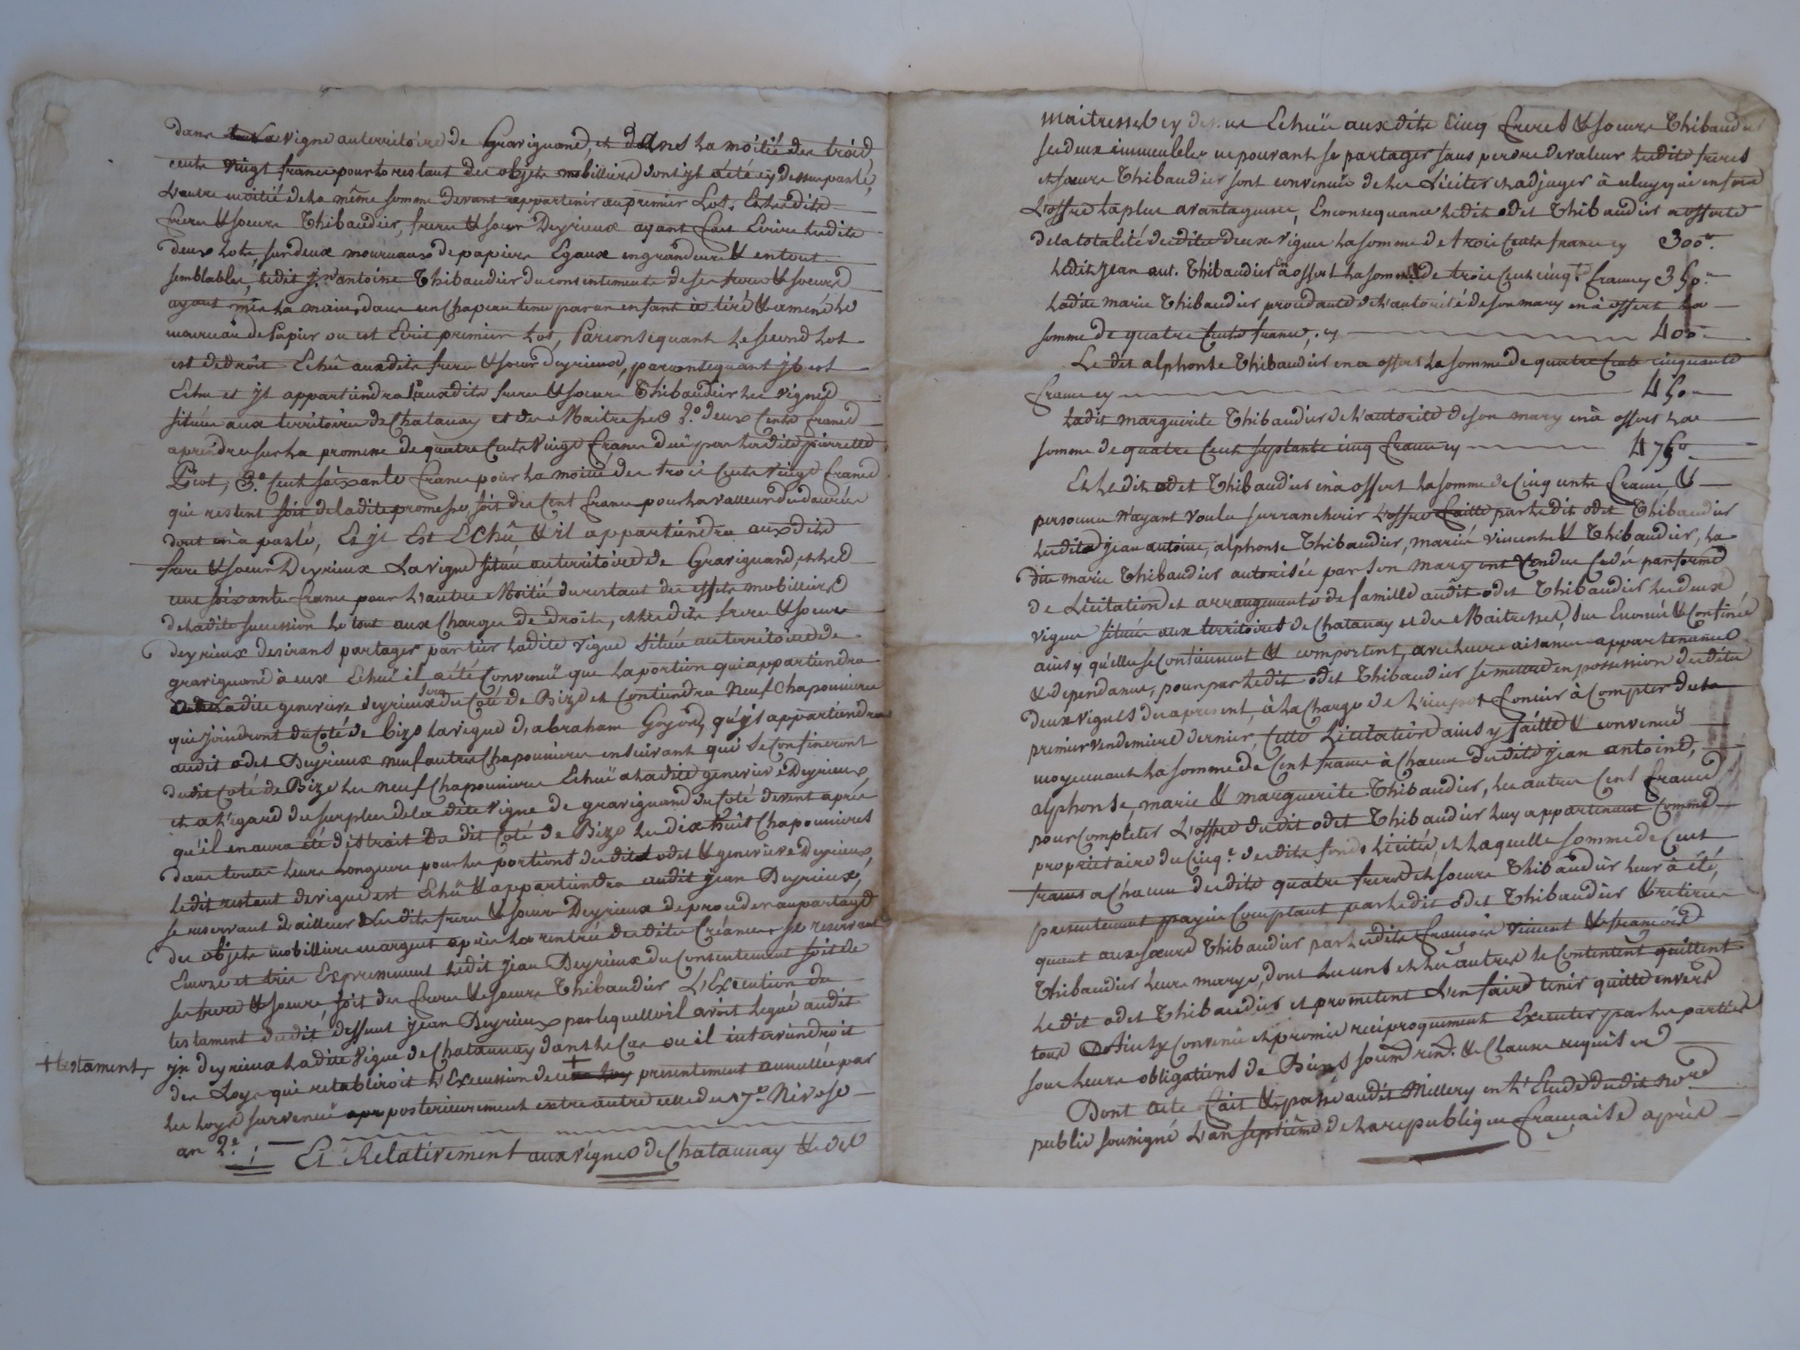 dans la vigne au territoire de Gravignand, et dans la moitié des trois
cents vingt francs pour le restant des objets mobilliers dont jl a été cy dessus parlé,
L'autre moitié de la même somme devant appartenir au premier Lot. Et lesdits
freres & soeurs Thibaudier, freres & soeur Deyrieux ayant fait Ecrire lesdits
deux lots sur deux mourceaux de papiers Egaux en grandeurs & en tout
semblables, ledit jn antoine Thibaudier du consentement de ses freres & soeurs
ayant mis la main dans un chapeau tenu par un enfant a tiré & amené le
mourceau de Papier ou est Ecrit premier Lot, Par consequant le second Lot
est de droit Echû auxdits freres & soeur deyrieux, par consequant jl est
Echu et jl appartiendra auxdits freres & soeurs Thibaudier les vignes
situées aux territoires de Chatanay et des Maitresses 2.o deux Cents francs
a prendre sur la promesse de quatre Cents vingt francs duë par ledit pierre
Piot, 3.o Cent soixante francs pour la moitié des trois Cents vingt francs
qui restent soit de ladite promesse, soit des Cent francs pour la valleur des danrées
dont on a parlé, Et jl Est Echû & il appartiendra auxdits
freres & soeur Deyrieux La vigne située au territoire de Gravignand, et les
cent soixante francs pour l'autre Moitié du restant des effets mobilliers
de ladite succession le tout aux Charges de droit, et lesdits freres & soeur
deyrieux desirans partager par tier ladite vigne située au territoire de
gravignand à eux Echuë il a été Convenuë que la portion qui appartiendra
à ladite genevieve deyrieux sera du Coté de Bize et Contiendra neuf Chaponieres
qui joindront du Coté de bize la vigne d'abraham Goyon, qu'jl appartiendra
audit odet Deyrieux neuf autres Chaponieres en suivant qui se Confineront
dudit Coté de Bize les neuf Chaponieres Echuë a ladite genevieve Deyrieux,
et a l'égard du surplus de la dite vigne de gravignand du Coté de vent après
qu'il en aura été distrait Du dit Coté de Bize les dix huit Chaponieres
dans toutes leurs Longueurs pour les portions desdits odet & genevieve Deyrieux,
ledit restant de vigne est Echû & appartiendra audit jean Deyrieux,
se reservant d'ailleur lesdits freres & soeur Deyrieux de proceder au partage
des objets mobilliers en argent après la rentrée desdites Créances se reservant
Encore et très Expressement ledit jean Deyrieux du Consentement soit de
ses freres & soeurs, soit des freres & soeurs Thibaudier L'Execution du
testament dudit deffunt jean Deyrieux par lequel il avoit legué audit
+ testament, jn deyrieux ladite vigne de Chatannay dans le Cas ou il interviendroit
des Loys qui retabliroit l'Execution de ce + presentement annullée par
les loys survenuë posterieurement entre autre celle du 17.e Nivose
an 2.e ; Et Relativement aux vignes de Chatannay & des
maitresses cy dessus Echuë auxdits cinq freres & soeurs Thibaudier
ces deux immeubles ne pouvant se partager sans perdre de valeur lesdits freres
et soeurs Thibaudier sont convenuë de les Liciter et adjuger à celuy qui en fera
L'offre la plus avantageuse, En consequance ledit odet Thibaudier a offert
de la totalité desdites deux vignes la somme de trois Cents francs cy 300 "
ledit jean ant. Thibaudier en a offert la somme de trois Cent cinqte francs 350 "
ladite marie Thibaudier procedante de l'autorité de son mary en à offert la
somme de quatre Cents francs, cy 400 "
Le dit alphonse Thibaudier en a offert la somme de quatre Cents cinquante
francs cy 450 "
ladite marguerite Thibaudier de l'autorité de son mary en à offert la
somme de quatre Cent septante cinq francs cy 475 "
Et ledit odet Thibaudier en à offert la somme de Cinq cents francs &
personne n'ayant voulu surrancherir L'offre faitte par ledit odet Thibaudier
lesdits jean antoine, alphonse Thibaudier, marie vincente Thibaudier, la
dite marie Thibaudier autorisée par son mary ont vendus cedés par forme
de Licitation et arrangements de famille audit odet Thibaudier les deux
vignes situées aux territoires de Chatanay et des Maitresses, sus Enoncé & Confinée
ainsy qu'elles se Contiennent & comportent, avec leurs aisances appartenances
& dependances, pour par ledit odet Thibaudier se mettre en possession desdites
deux vignes des apresent, à la Charge de l'impot foncier à Compter du
premier vendemiere dernier, cette Licitation ainsy faitte & convenuë
moyennant la somme de Cent francs à Chacun desdits jean antoine,
alphonse, marie & marguerite Thibaudier, les autres Cent francs
pour Completer L'offre dudit odet Thibaudier luy appartenant Comme
proprietaire du Cinq.e desdits fonds licités, et laquelle somme de Cent
francs a Chacun desdits quatre freres et soeurs Thibaudier leur à été,
presentement payée Comptant par ledit odet Thibaudier & retirée
quant aux soeurs Thibaudier par lesdits francois vincent & francois
Thibaudier leurs marys, dont les uns et les autres se Contentent quittent
ledit odet Thibaudier et promettent L'en faire tenir quitte envers
tous Ainsy Convenu et promis reciproquement Executer par les parties
sous leurs obligations de Biens soumons. & Clauses requises
Dont acte fait & passé audit Millery en l'Etude dudit nore
public soussigné L'an septieme de la republique française après